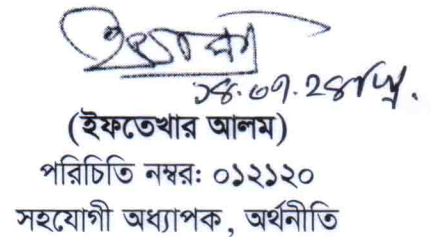 ১৪.০৭.২৪খ্রি.
(ইফতেখার আলম)
পরিচিতি নম্বরঃ ০১২১২০
সহযোগী অধ্যাপক, অর্থনীতি